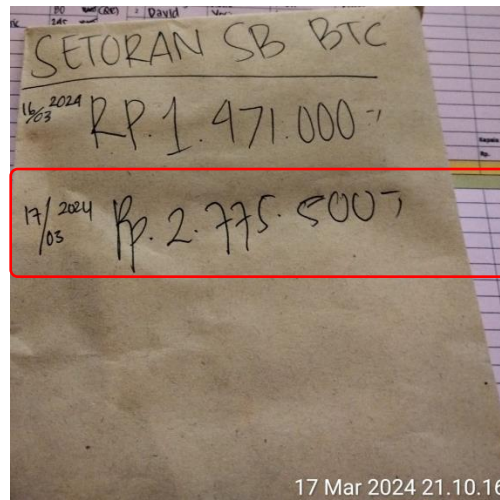 David
SETORAN SB BTC
16/03 2024 RP. 1.471.000-,
17/03 2024 Rp. 2.775.500-,
17 Mar 2024 21.10.16